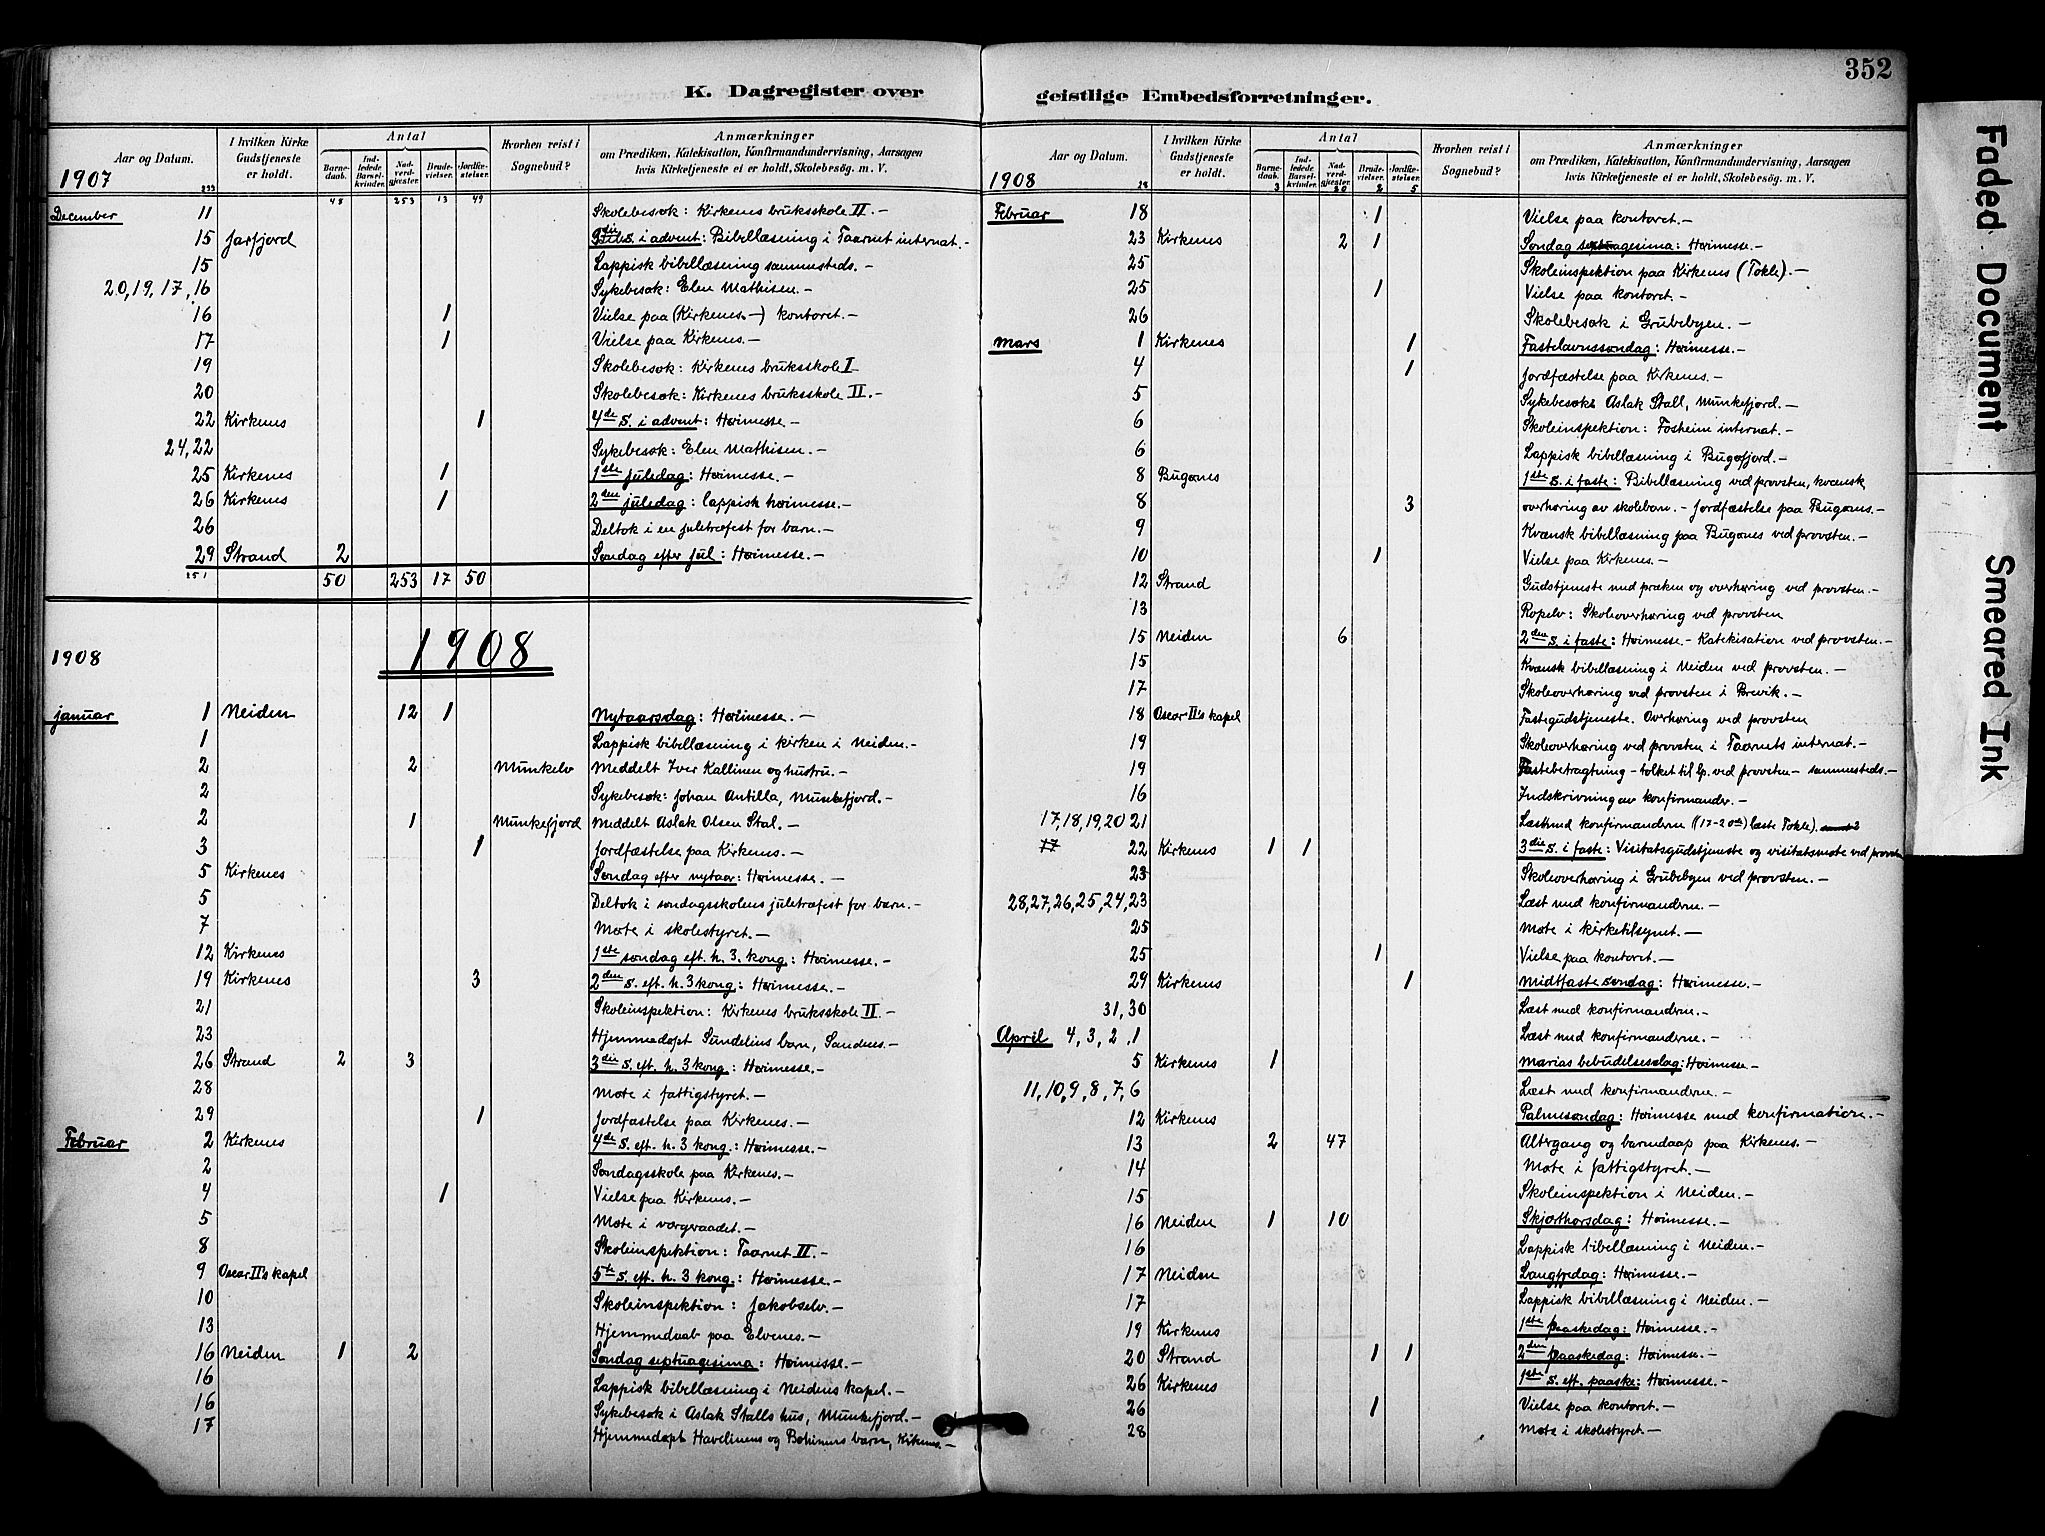 352
K. Dagregister over
Aar og Datum.
I hvilken Kirke Gudstjeneste er holdt.
Antal
Barnedaab.
Indledede Barselkvinder.
Nadverdgjester.
Brudevielser.
Jordfæstelser.
Hvorhen reist i Sognebud?
Anmærkninger
om Prædiken, Katekisation, Konfirmandundervisning, Aarsagen
hvis Kirketjeneste ei er holdt, Skolebesög. m. V.
1907
233 48 253 13 49
December 11 Skolebesøk: Kirkenes bruksskole II. –
15 Jarfjord 3die s. i advent: Bibellæsning i Taarnet internat. –
15 Lappisk bibellæsning sammesteds. –
20, 19, 17, 16 Sykebesøk: Elen Mathisen. –
16 1 Vielse paa (Kirkenes. –) kontoret. –
17 1 Vielse paa Kirkenes. –
19 Skolebesøk: Kirkenes bruksskole I
20 Skolebesøk: Kirkenes bruksskole II. –
22 Kirkenes 1 4de s. i advent: Høimesse –
24, 22 Sykebesøk: Elen Mathisen. –
25 Kirkenes 1 1ste juledag: Høimesse. –
26 Kirkenes 1 2den juledag: Lappisk høimesse. –
26 Deltok i en juletræfest for barn. –
29 Strand 2 Søndag efter jul: Høimesse. –
251 50 253 17 50
1908 1908
Januar 1 Neiden 12 1 Nytaarsdag: Høimesse. –
1 Lappisk bibellæsning i kirken i Neiden. –
2 2 Munkelv Meddelt Iver Kallinen og hustru. –
2 Sykebesøk: Johan Antilla, Munkefjord. –
2 1 Munkefjord Meddelt Aslak Olsen Stal. –
3 1 Jordfæstelse paa Kirkenes. –
5 Kirkenes Søndag efter nytaar: Høimesse. –
5 Deltok i søndagsskolens juletræfest for barn. –
7 Møte i skolestyret. –
12 Kirkenes 1ste søndag eft. h. 3. kong.: Høimesse. –
19 Kirkenes 3 2den s. eft. h. 3 kong.: Høimesse. –
21 Skoleinspektion: Kirkenes bruksskole II –
23 Hjemmedøpt Sundelius barn, Sandnes. –
26 Strand 2 3 3die s. eft. h. 3 kong.: Høimesse. –
28 Møte i fattigstyret. –
29 1 Jordfæstelse paa Kirkenes. –
Februar 2 Kirkenes 4de s. eft. h. 3 kong.: Høimesse. –
2 Søndagsskole paa Kirkenes. –
4 1 Vielse paa Kirkenes. –
5 Møte i værgeraadet. –
8 Skoleinspektion: Taarnet II. –
9 Oscar II's kapel 5te s. eft. h. 3 kong.: Høimesse. –
10 Skoleinspektion: Jakobselv. –
13 Hjemmedaab paa Elvenes. –
16 Neiden 1 2 Søndag septuagesima: Høimesse. –
16 Lappisk bibellæsning i Neidens kapel. –
16 Sykebesøk i Aslak Stalls hus, Munkefjord. –
17 Hjemmedøpt Havelinens og barn, Kirkenes. –
geistlige Embedsforretninger.
Aar og Datum.
I hvilken Kirke Gudstjeneste er holdt.
Antal
Barnedaab.
Indledede Barselkvinder.
Nadverdgjester.
Brudevielser.
Jordfæstelser.
Hvorhen reist i Sognebud?
Anmærkninger
om Prædiken, Katekisation, Konfirmandundervisning, Aarsagen
hvis Kirketjeneste ei er holdt, Skolebesög. m. V.
1908
28 3 20 2 5
Februar 18 1 Vielse paa kontoret. –
23 Kirkenes 2 1 Søndag sexagesima: Høimesse. –
25 Skoleinspektion paa Kirkenes (Tokle). –
25 1 Vielse paa kontoret. –
26 Skolebesøk i Grubebyen. –
Mars 1 Kirkenes 1 Fastelavnssøndag: Høimesse. –
4 1 Jordfæstelse paa Kirkenes. –
5 Sykebesøk: Aslak Stall, Munkefjord. –
6 Skoleinspektion: Fosheim internat. –
6 Lappisk bibellæsning i Bugøfjord. –
8 Bugønes 1ste s. i faste: Bibellæsning ved provsten, kvænsk
8 3 overhøring av skolebarn. – Jordfæstelse paa Bugønes. –
9 Kvænsk bibellæsning paa Bugønes ved provsten. –
10 1 Vielse paa Kirkenes. –
12 Strand Gudstjeneste med præken og overhøring ved provsten. –
13 Ropelv: Skoleoverhøring ved provsten
15 Neiden 6 2den s. i faste: Høimesse. – Katekisation ved provsten. –
15 Kvænsk bibellæsning i Neiden ved provsten. –
17 Skoleoverhøring ved provsten i Brevik. –
18 Oscar II's kapel Fastegudstjeneste. Overhøring ved provsten
19 Skoleoverhøring ved provsten i Taarnets internat. –
19 Fastebetragtning – tolket til lp. ved provsten – sammesteds. –
16 Indskrivning av konfirmander. –
17, 18, 19, 20 21 Læst med konfirmanderne ((17–20de) læste Tokle).
17 22 Kirkenes 1 1 3die s. i faste: Visitatsgudstjeneste og visitatsmøte ved provsten
23 Skoleoverhøring i Grubebyen ved provsten. –
28, 27, 26, 25, 24, 23 Læst med konfirmanderne. –
25 Møte i kirketilsynet. –
25 1 Vielse paa kontoret. –
29 Kirkenes 1 Midtfastesøndag: Høimesse. –
31, 30 Læst med konfirmanderne. –
April 4, 3, 2, 1 Læst med konfirmanderne. –
5 Kirkenes 1 Marias bebudelsesdag: Høimesse. –
11, 10, 9, 8, 7, 6 Læst med konfirmanderne. –
12 Kirkenes Palmesøndag: Høimesse med konfirmation. –
13 2 47 Altergang og barnedaap paa Kirkenes. –
14 Møte i fattigstyret. –
15 Skoleinspektion i Neiden. –
16 Neiden 1 10 Skjærthorsdag: Høimesse. –
16 Lappisk bibellæsning i Neiden. –
17 Neiden Langfredag: Høimesse. –
17 Lappisk bibellæsning i Neiden. –
19 Kirkenes 1ste paaskedag: Høimesse. –
20 Strand 1 1 2den paaskedag: Høimesse. –
26 Kirkenes 1ste s. eft. paaske: Høimesse. –
26 1 Vielse paa kontoret. –
28 Møte i skolestyret. –
Faded Document
Smeared Ink